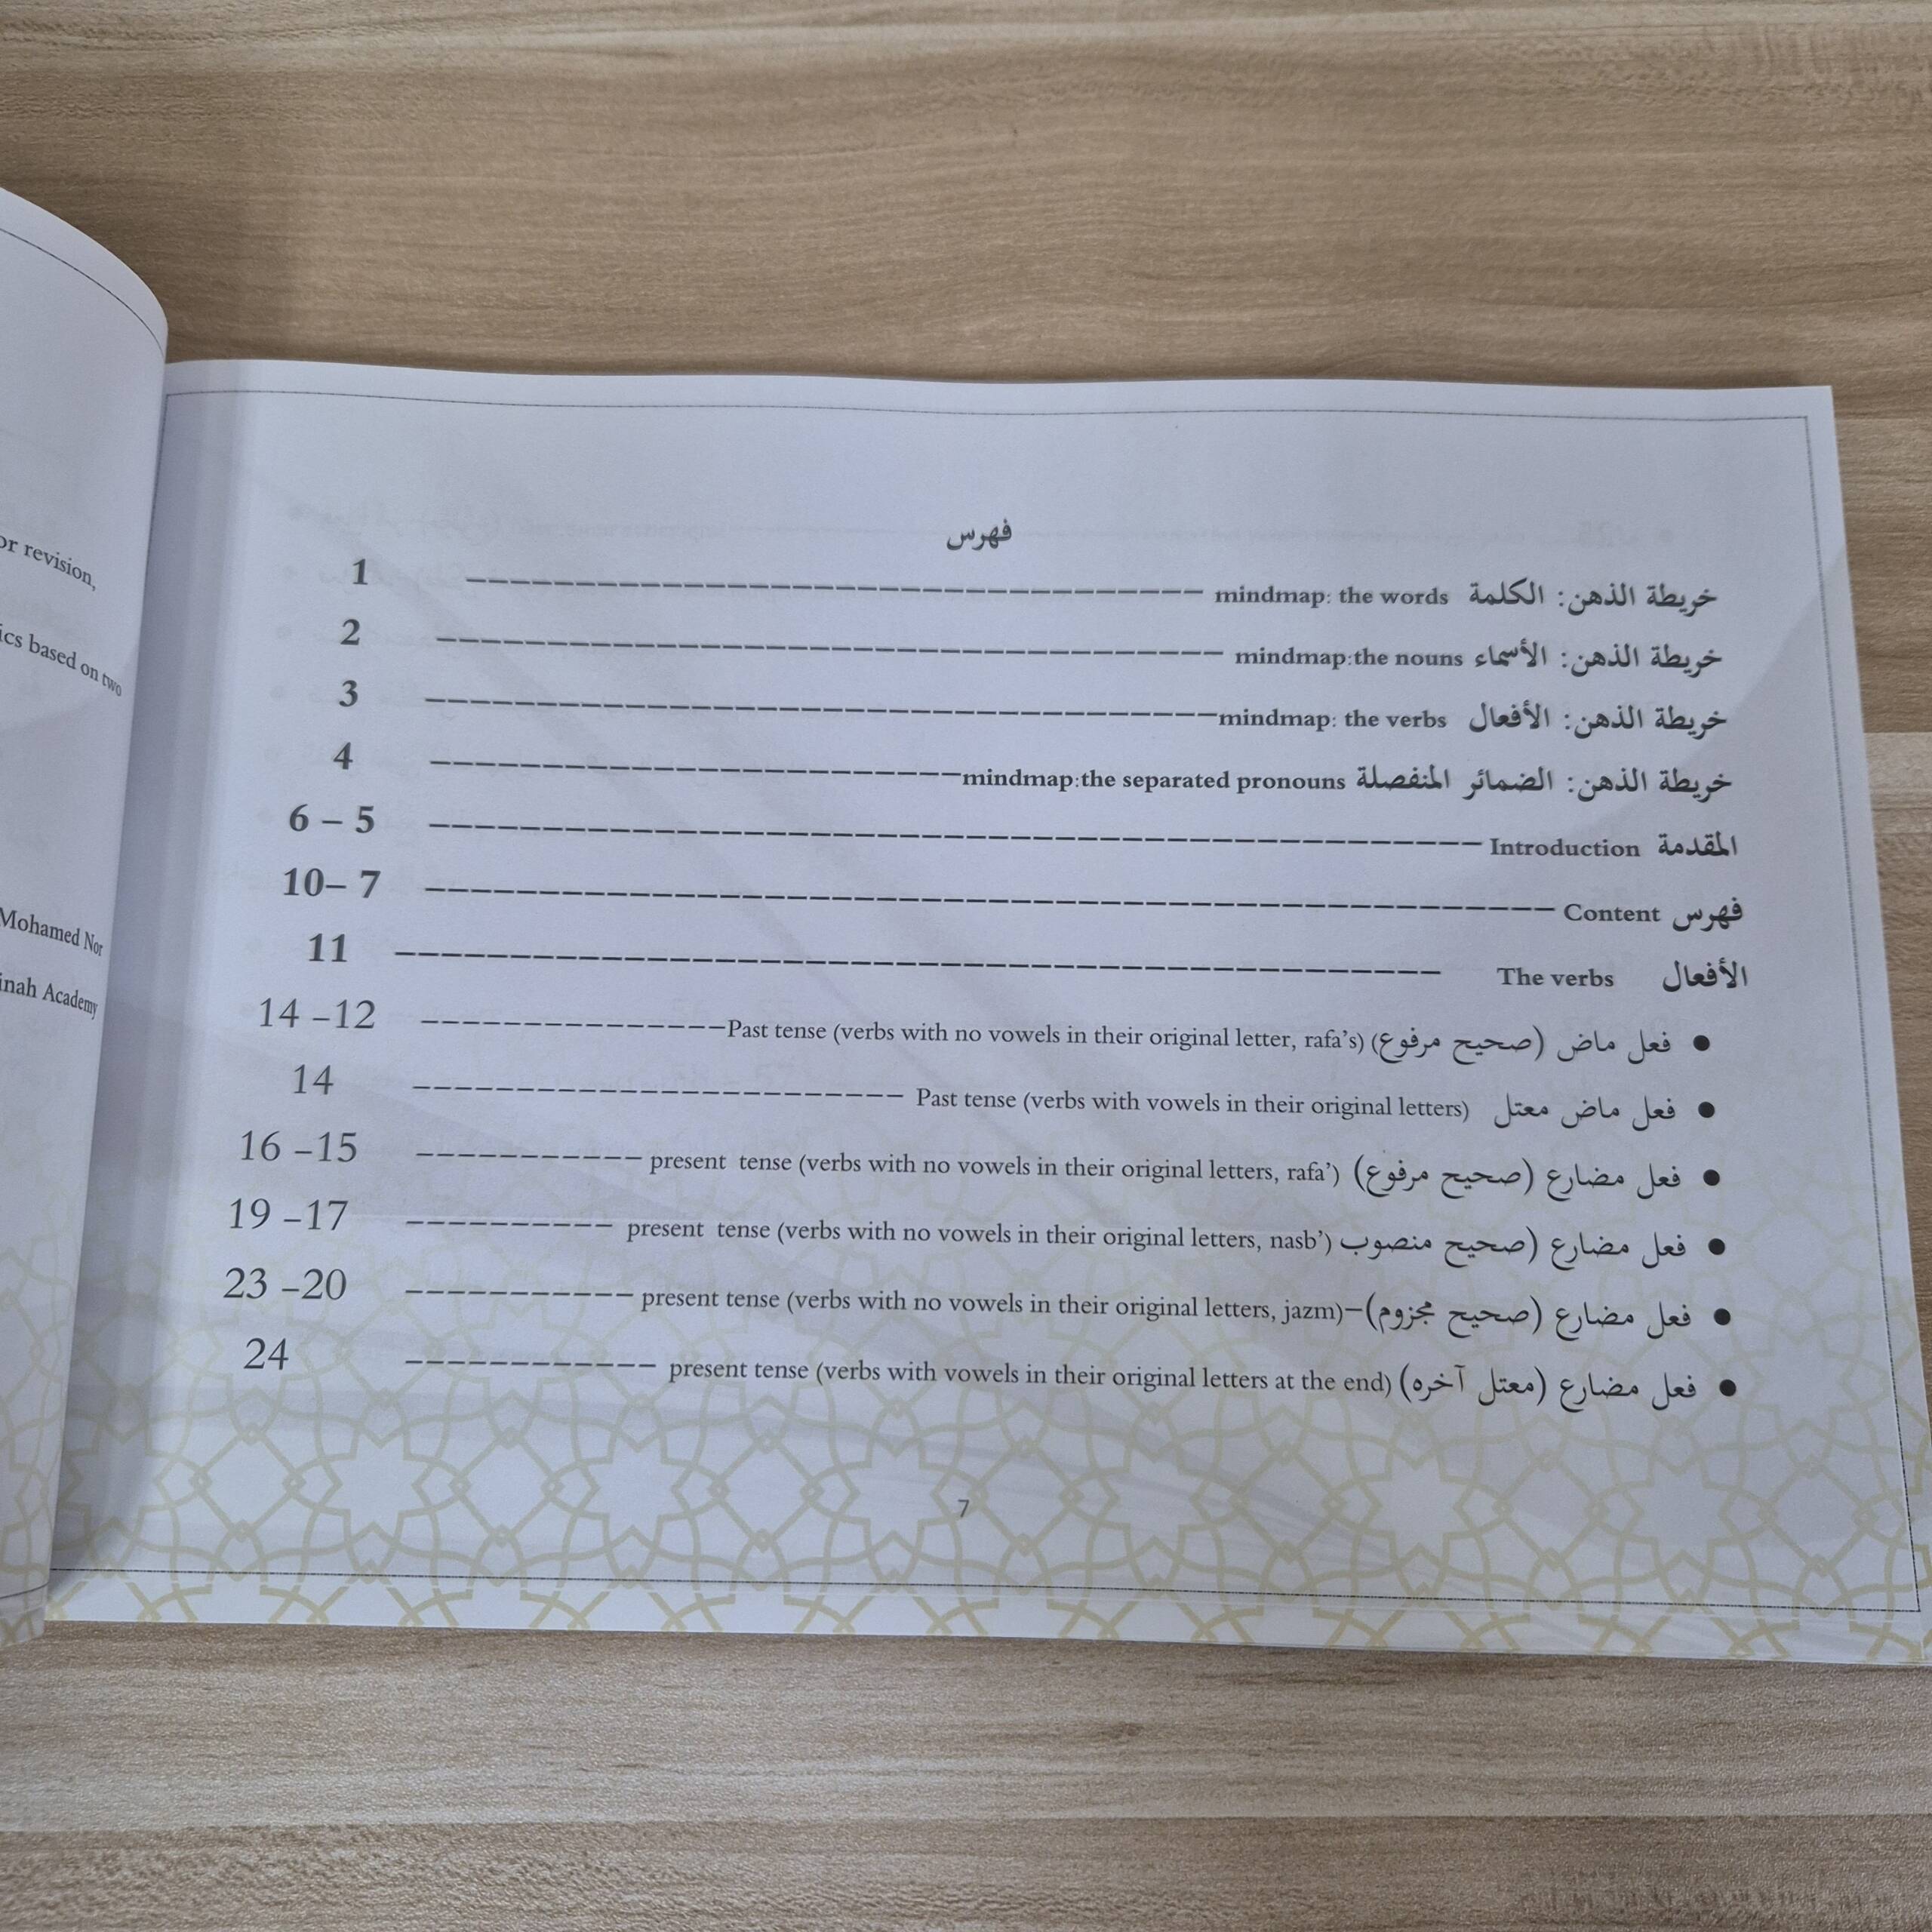 or revision,
ics based on two
Mohamed Nor
inah Academy
فهرس
خريطة الذهن: الكلمة mindmap: the words ------------------------------------ 1
خريطة الذهن: الأسماء mindmap:the nouns -------------------------------------- 2
خريطة الذهن: الأفعال mindmap: the verbs-------------------------------------- 3
خريطة الذهن: الضمائر المنفصلة mindmap:the separated pronouns-------------------------- 4
المقدمة Introduction --------------------------------------------------- 6 – 5
فهرس Content ------------------------------------------------------ 10– 7
الأفعال The verbs -------------------------------------------------- 11
● فعل ماض (صحيح مرفوع) Past tense (verbs with no vowels in their original letter, rafa's)--------------- 14 –12
● فعل ماض معتل Past tense (verbs with vowels in their original letters) ------------------------ 14
● فعل مضارع (صحيح مرفوع) present tense (verbs with no vowels in their original letters, rafa') ----------- 16 –15
● فعل مضارع (صحيح منصوب present tense (verbs with no vowels in their original letters, nasb') ---------- 19 –17
● فعل مضارع (صحيح مجزوم)–present tense (verbs with no vowels in their original letters, jazm) ----------- 23 –20
● فعل مضارع (معتل آخره) present tense (verbs with vowels in their original letters at the end) ------------ 24
7